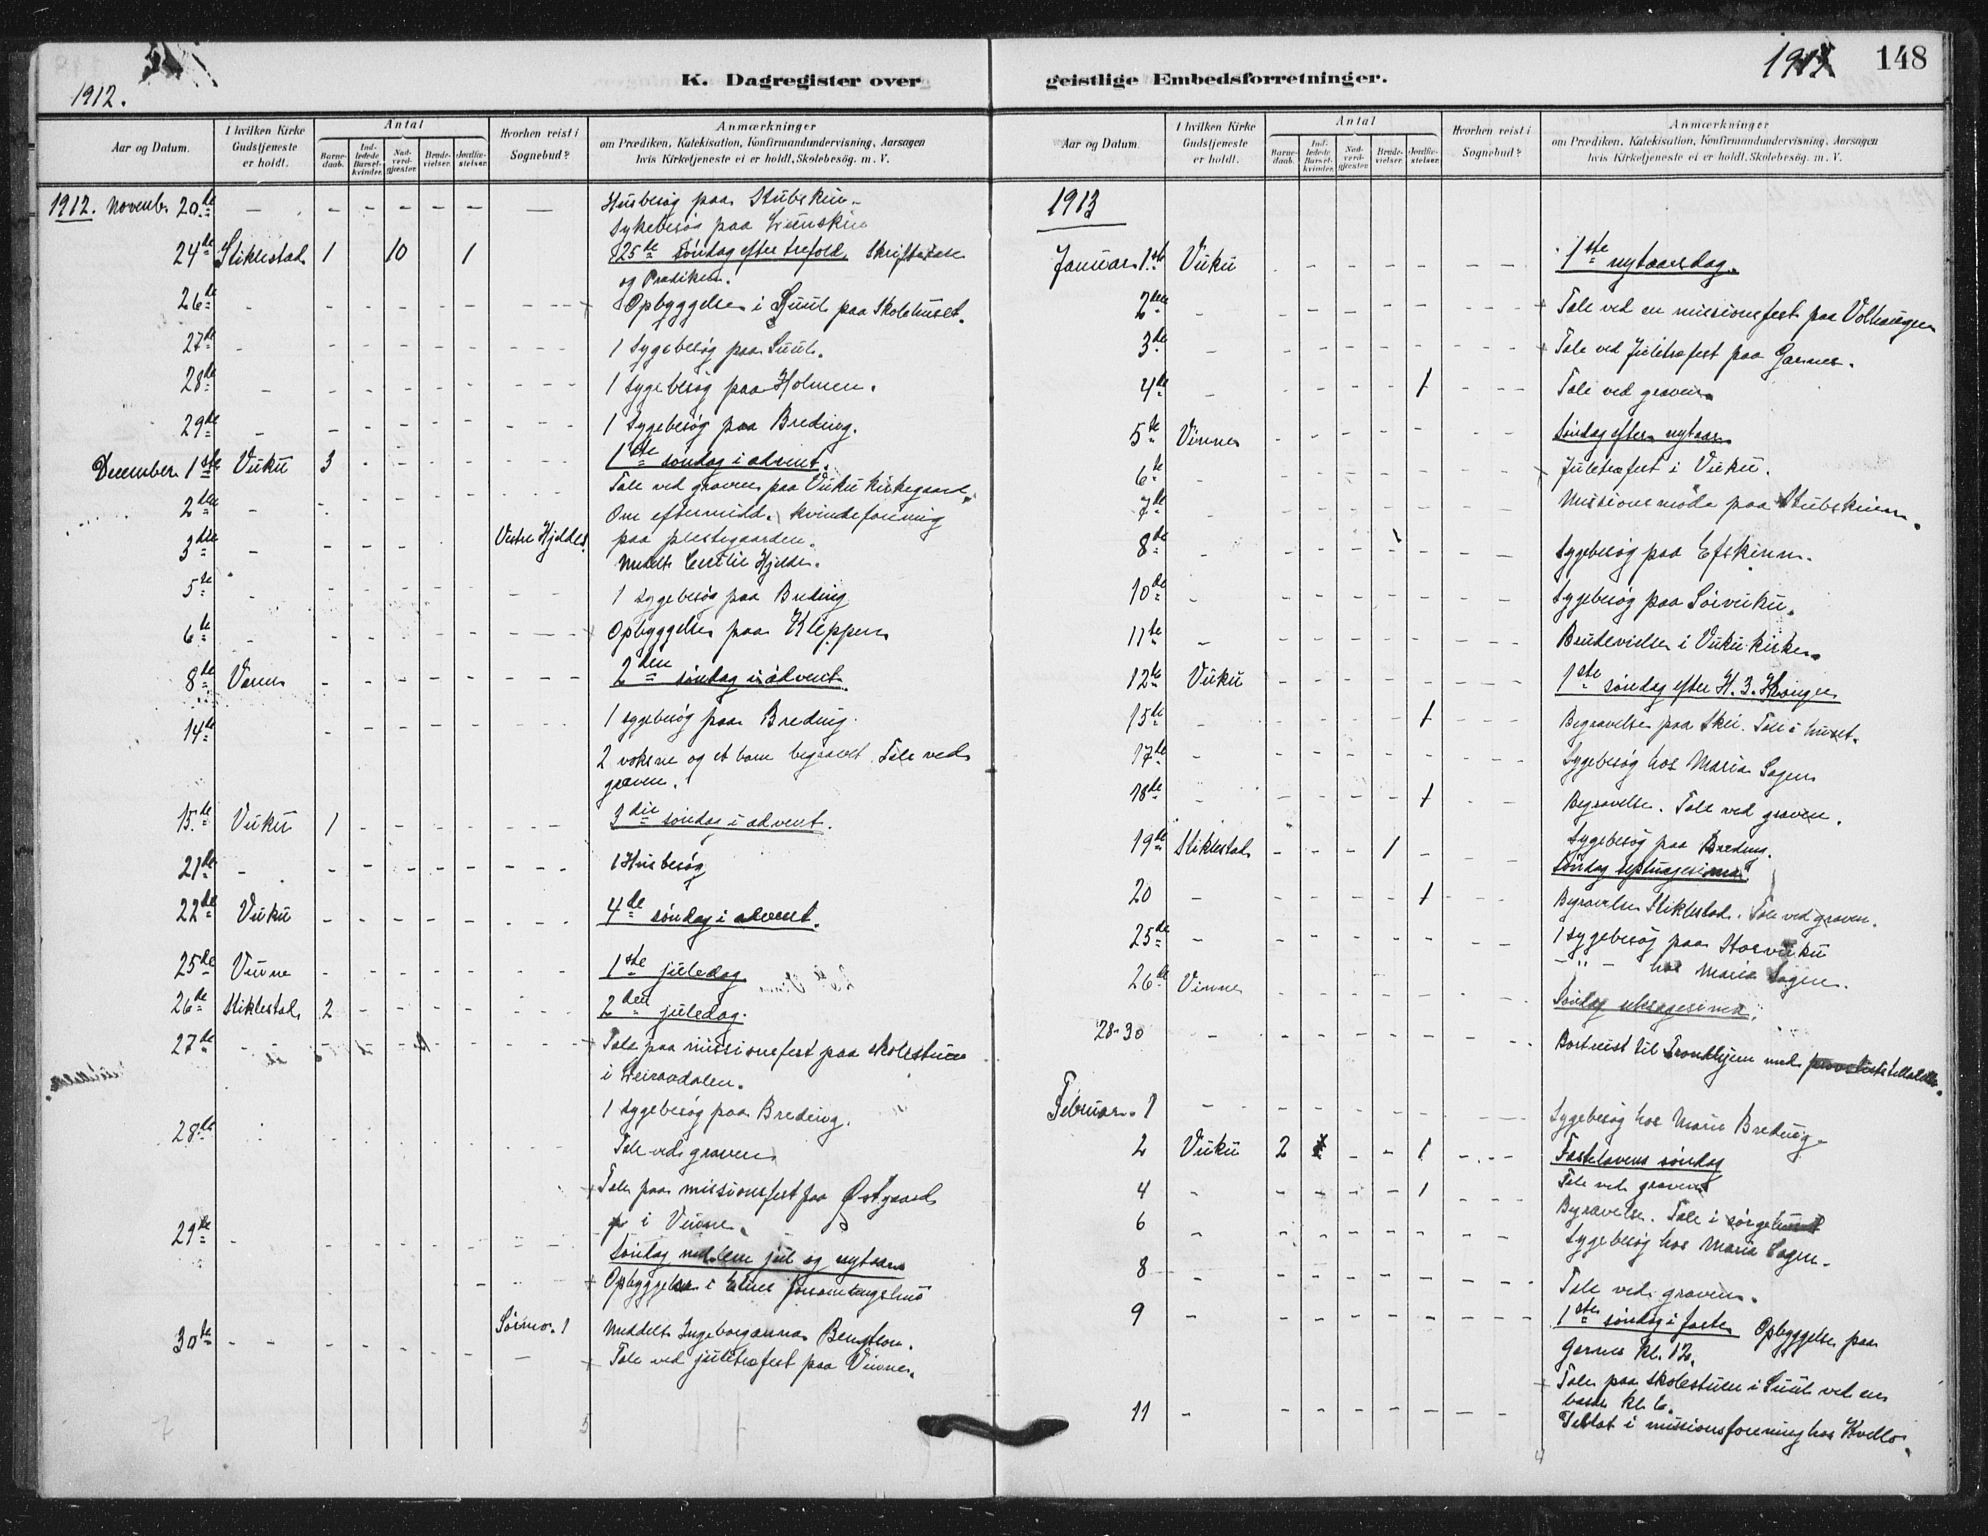 1912.
K. Dagregister over
Aar og Datum.
I hvilken Kirke Gudstjeneste er holdt.
Antal
Barne-daab.
Ind-ledede Barsel-kvinder.
Nad-verd-gjæster.
Brude-vielser.
Jordfæ-stelser.
Hvorhen reist i Sognebud?
Anmærkninger
om Prædiken, Katekisation, Konfirmandundervisning, Aarsagen
hvis Kirketjeneste ei er holdt, Skolebesøg. m. V.
1912. Novemb. 20de - - - - - - - Husbesøg paa Stubskin.
Sykebesøg paa
24de Stiklestad 1 10 1 25de søndag efter trefold. Skriftetale
og Prædiken.
26de - - - - - - Opbyggelse i Suul paa Skolehuset.
27de - - - - - - 1 Sygebesøg paa Suul.
28de - - - - - - 1 Sygebesøg paa Holmen.
29de - - - - - - 1 Sygebesøg paa Breding.
December 1ste Vuku 3 - - - - 1ste søndag i advent.
Tale ved graven paa Vuku kirkegaard.
2den - - Om eftermidd. kvindeforening
3die - - - - - Vestre Hjeldes. paa prestegaarden.
Meddelt Cecilie Hjelde.
5te - - - - - - 1 sygebesøg paa Breding
6te - - - - - - Opbyggelse paa Kleppen
8de Væren - - - - - - 2den søndag i advent
14de - - - - - 1 sygebesøg paa Breding.
2 voksne og et barn begravet. Tale ved
graven.
15de Vuku 1 - - - - - 3die søndag i advent.
21de - - - - - - 1 Husbesøg
22de Vuku - - - - - - 4de søndag i advent.
25de Vinne - - - - - - 1ste juledag
26de Stiklestad 2 - - - - - 2den juledag.
27de - - - - Tale paa missionsfest paa skolestuen
i
1 sygebesøg paa Breding.
28de - - - Tale ved graven
Tale paa missionsfest paa Østgaard
i Vinne.
29de - - - - - Søndag mellem jul og nytaar
Opbyggelse i forsamlingshus
30te - - - - - - Sørmo. 1 Meddelt Bengtson.
Tale ved juletræfest paa Vinne.
geistlige Embedsforretninger.
1913
148
Aar og Datum.
I hvilken Kirke Gudstjeneste er holdt.
Antal
Barne-daab.
Ind-ledede Barsel-kvinder.
Nad-verd-gjæster.
Brude-vielser.
Jordfæ-stelser.
Hvorhen reist i Sognebud?
Anmærkninger
om Prædiken, Katekisation, Konfirmandundervisning, Aarsagen
hvis Kirketjeneste ei er holdt, Skolebesøg. m. V.
1913
Januar 1ste Vuku - - - - - - 1ste nytaarsdag.
2den - - - - - - Tale ved en missionsfest paa Volhaugen
3de - - - - - - Tale ved Juletræfest paa Garnes.
4de - - - - - 1 - Tale ved graven
5te Vinne - - - - - - Søndag efter nytaar
6te - - - - - - Juletræfest i Vuku.
7de - - - - - - Missionsmøde paa Stubskin.
8de - - - - - - Sygebesøg paa Efskinn.
10de - - - - - - Sygebesøg paa Sørvuku.
11te - - - - - - Brudevielse i Vuku kirke.
12te Vuku - - - - - - 1ste søndag efter H. 3. Konger
15de - - - - - 1 - Begravelse paa Tale i huset.
17de - - - - - - Sygebesøg hos Maria Sagen
18de - - - - - 1 - Begravelse. Tale ved graven.
19de Stiklestad - - - 1 - - Sygebesøg paa Breding.
Søndag septuagesima
20 - - - - - 1 - Begravelse Stiklestad. Tale ved graven.
25de - - - - - - 1 sygebesøg paa Storvuku
- " - hos Maria Sagen.
26de Vinne - - - - - - Søndag seksagesima.
28-30 - - - - - - Bortreist til Trondhjem med
Februar. 1 - - - - - - Sygebesøg hos Marie Breding.
2 Vuku 2 - - 1 - Fastelavens søndag
Tale ved graven
4 - - - - - 1 - Begravelse. Tale i sørgehuset
6 - - - - - - Sygebesøg hos Maria Sagen.
8 - - - - - - Tale ved graven.
9 - - - - - - 1ste søndag i faste Opbyggelse paa
Garnes kl. 12.
Tale paa skolestuen i Suul ved en
basar kl. 6.
11 - - - - - - Deltat i missionsforening hos Kvello.